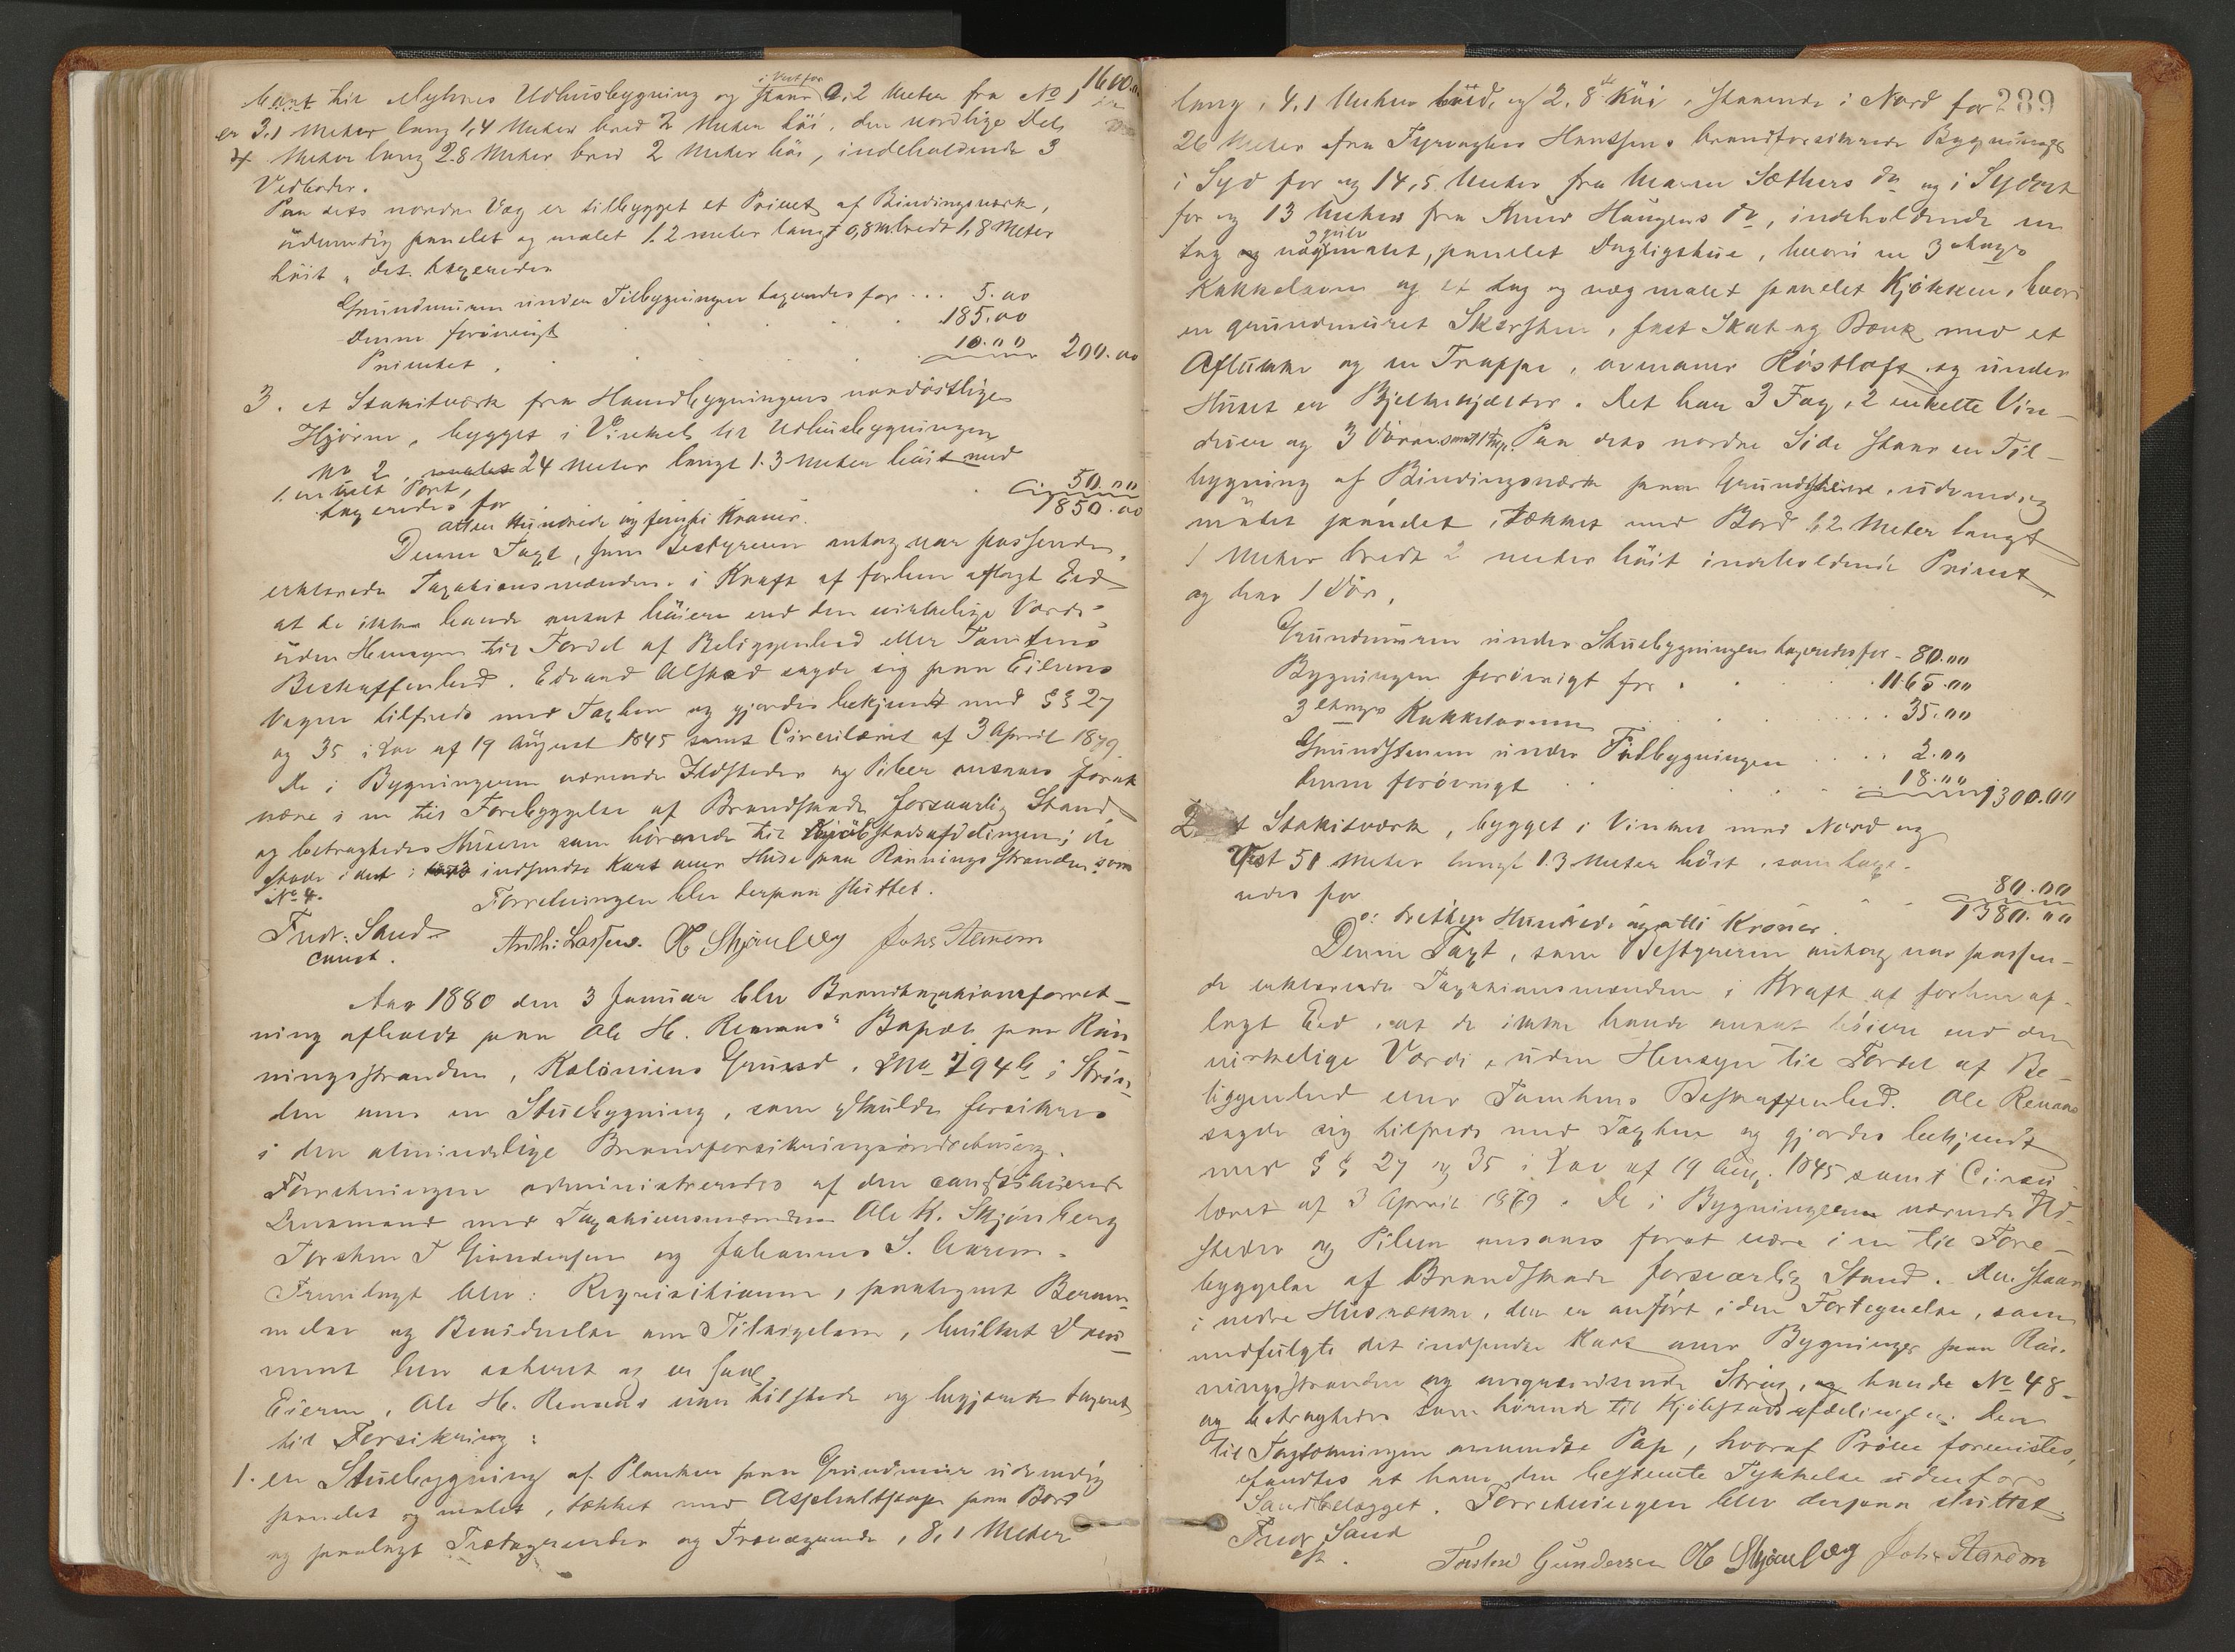 bart til Udhusbygning og staar 0,2 Meter fra No 1
i Vest for
1600.00
er 3,1 Meter lang 1,4 Meter bred 2 Meter höi, den nordlige Del
4 Meter lang 2.8 Meter bred 2 Meter höi, indeholdende 3
Vedboder.
Paa dets nordre Væg er tilbygget et Privet af Bindingsværk,
udvendig panelet og malet 1.2 meter langt 0,8 m bredt 1,8 Meter
höit, det taxeredes
Grundmuren under Tilbygningen taxeredes for ... 5.00
denne forövrigt 185.00
Privetet 10.00 200.00
3. et Stakitværk fra Hovedbygningens nordöstlige
Hjörne, bygget i Vinkel til Udhusbygningen
No 2, 24 Meter langt 1.3 Meter höit med
1 Port,
taxeredes for 50.00
1850.00
atten Hundrede og femti Kroner.
Denne Taxt, som Bestyreren antog var passende,
erklærede Taxationsmændene i Kraft af forhen aflagt Eed
at de ikke havde ansat höiere end den virkelige Værdi,
uden Hensyn til Fordel af Beliggenhed eller Tomtens
Beskaffenhed. Edvard Alstad sagde sig paa Eierens
Vegne tilfreds med Taxten og gjordes bekjendt med §§ 27
og 35 i Lov af 19 August 1845 samt Circulæret af 3 April 1879.
De i Bygningerne værende Ildsteder og Piber ansaaes forat
være i en til Forebyggelse af Brandskade forsvarlig Stand
og betragtedes Husene som hörende til Kjöbstadsafdelingen; de
staar i det i indsendte Kart over Huse paa Rönningsstranden som
No 4. Forretningen blev derpaa sluttet.
Fredr: Sand
const.
Andr: Larsen. O K Skjönberg Johs Aarem
Aar 1880 den 3 Januar blev Brandtaxationsforret-
ning afholdt paa Ole H. Remaas' Bopæl paa Rön
ningsstranden, Kaloniens Grund, Mno 294b i Strin-
den over en Stuebygning, som skulde forsikres
i den almindelige Brandforsikringsindretning.
Forretningen administreredes af den constituerede
Lensmand med Taxationsmændene Ole K. Skjönberg
Torsten T Gundersen og Johannes S. Aarem.
Fremlagt blev: Reqvisitionen, paategnet Beram-
melse og Beviduelse om Tilsigelsen, hvilket Docu-
ment blev
Eieren, Ole H. Remaas var tilstede og begjærede taxeret
til Forsikring:
1. en Stuebygning af Planker paa Grundmuur udvendig
panelet og malet, tækket med Asphaltpap paa Bord
og paalagt Trætagrender og Trævægrender, 8,1 Meter
289
lang, 4,1 Meter bred, og 2,8 do höi, staaende i Nord for
26 Meter fra Hansens brandforsikrede Bygninger
i Syd for og 14,5 Meter fra Maren Sæthers do og i Sydost
for og 13 Meter fra Knud Haugens do, indeholdende en
tag og vægmalet, panelet Dagligstue, hvori en 3 Etages
Kakkelovn og et tag og vægmalet panelet Kjökken, hvori
en grundmuret Skorsten, fast Skab og Bænk med et
Aflukke og en Trappe, ovenover Röstloft og under
Huset en Bjelkekjelder. Det har 3 Fag, 2 enkelte Vin-
duer og 3 Döre samt 1 Trap. Paa dets nordre Side staar en Til-
bygning af Bindingsværk paa Grundstene, udvendig
malet panelet, tækket med Bord 1,2 Meter langt
1 Meter bredt 2 meter höit indeholdende Privet
og har 1 Dör.
Grundmuren under Stuebygningen taxeredes for - 80.00
Bygningen forövrigt for 1165.00
3 Etages Kakkelovnen 35.00
Grundstenene under Tilbygningen 2.00
denne forövrigt 18.00 1300.00
2. et Stakitværk, bygget i Vinkel mod Nord og
Vest 51 Meter langt 1.3 Meter höit, som taxe-
redes for 80.00
1380.00
o: tretten Hundrede og otti Kroner.
Denne Taxt, som Bestyreren antog var passen-
de erklærede Taxationsmændene i Kraft af forhen af-
lagt Eed, at de ikke havde ansat höiere end den
virkelige Værdi, uden Hensyn til Fordel af Be-
liggenhed eller Tomtens Beskaffenhed. Ole Remaas
sagde sig tilfreds med Taxten og gjordes bekjendt
med §§ 27 og 35 i Lov af 19 Aug. 1845 samt Circu-
læret af 3 April 1879. De i Bygningerne værende Ild-
steder og Piben ansaaes forat være i en til Fore-
byggelse af Brandskade forsvarlig Stand. Den staar
i nedre Husrække, den er anfört i den Fortegnelse, som
medfulgte det indsendte Kart over Bygninger paa Rön-
ningsstranden og angrændsende Strög, havde No 48
og betragtedes som hörende til Kjöbstadsafdelingen. Den
til Tagtækningen anvendte Pap, hvoraf Pröve forevistes,
fandtes at have den bestemte Tykkelse udenfor
Sandbelægget. Forretningen blev derpaa sluttet.
Fredr Sand
cst.
Torsten Gundersen O K Skjönberg Johs Aarem